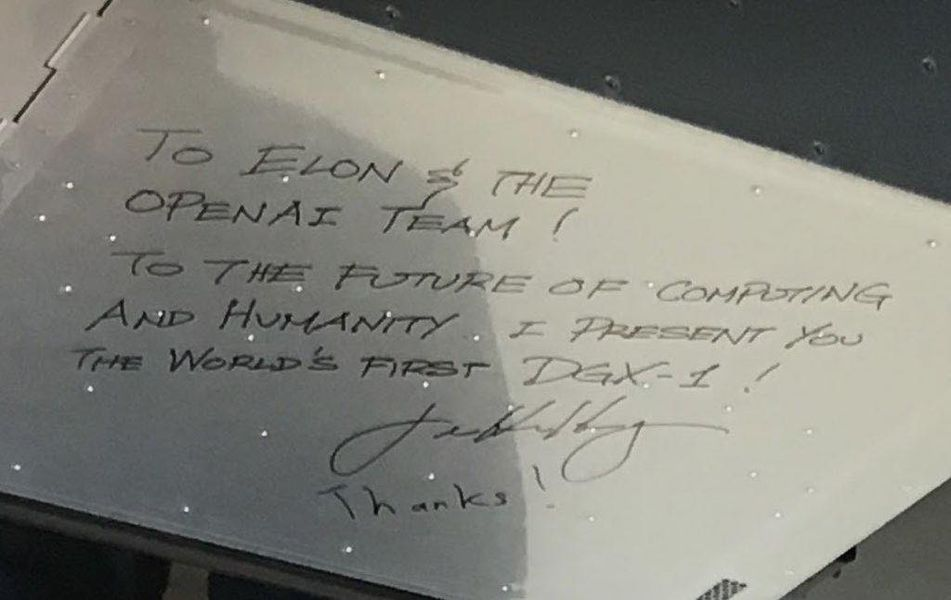 To ELON & THE
OPENAI TEAM!
To THE FUTURE OF COMPUTING
AND HUMANITY. I PRESENT YOU
THE WORLD'S FIRST DGX-1!
Thanks!